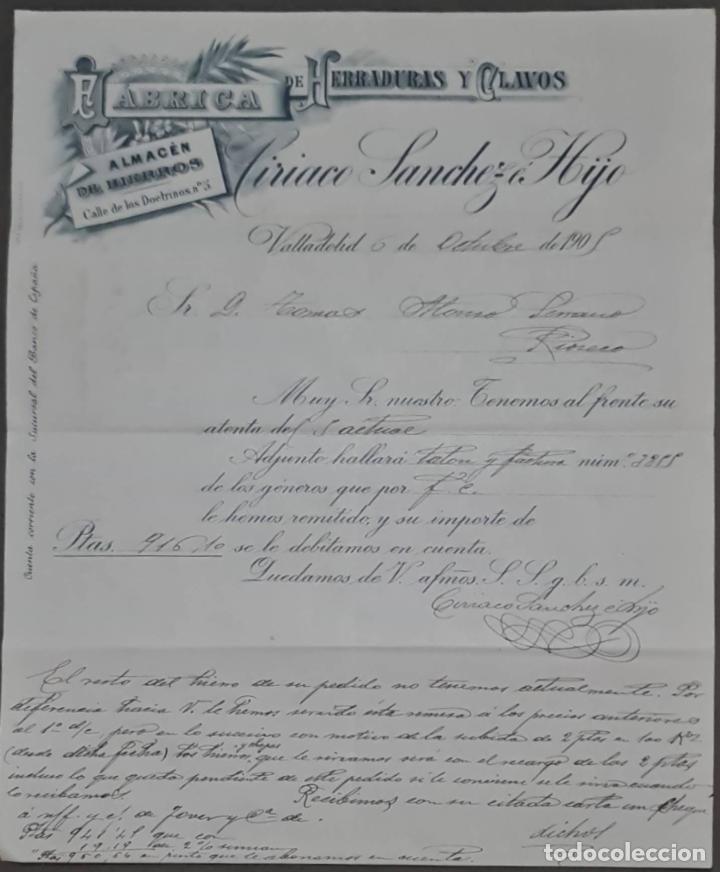 FÁBRICA DE HERRADURAS Y CLAVOS
ALMACÉN
DE HIERROS
Calle de los Doctrinos, nº 5
Ciriaco Sanchez é Hijo
Valladolid 6 de Octubre de 1905
Sr. D. Tomas Alonso Serrano
Rioseco
Cuenta corriente con la Sucursal del Banco de España
Muy Sr. nuestro: Tenemos al frente su
atenta del 5 actual
Adjunto hallará talon y factura núm.
de los géneros que por f. c.
le hemos remitido, y su importe de
Ptas. 916,10 se lo debitamos en cuenta.
Quedamos de V. afmos. S. S. q. b. s. m.
Ciriaco Sanchez é Hijo
El resto del hierro de su pedido no tenemos actualmente. Por
deferencia hacia V. le hemos servido ésta remesa á los precios anteriores
al 1º d/c. pero en lo sucesivo con motivo de la subida de 2 ptas en 100 Ks
(desde dicha fecha) los hierros y chapas que le sirvamos será con el recargo de las 2 ptas
incluso lo que queda pendiente de este pedido si le conviene se le envia cuando
lo recibamos. Recibimos con su citada carta un cheque
á n/f. y c/. de Jover y Cª de
Ptas 941,45 que con dichos
19,19 de 2% suman
Ptas 960,64 en junto que le abonamos en cuenta.
todocoleccion